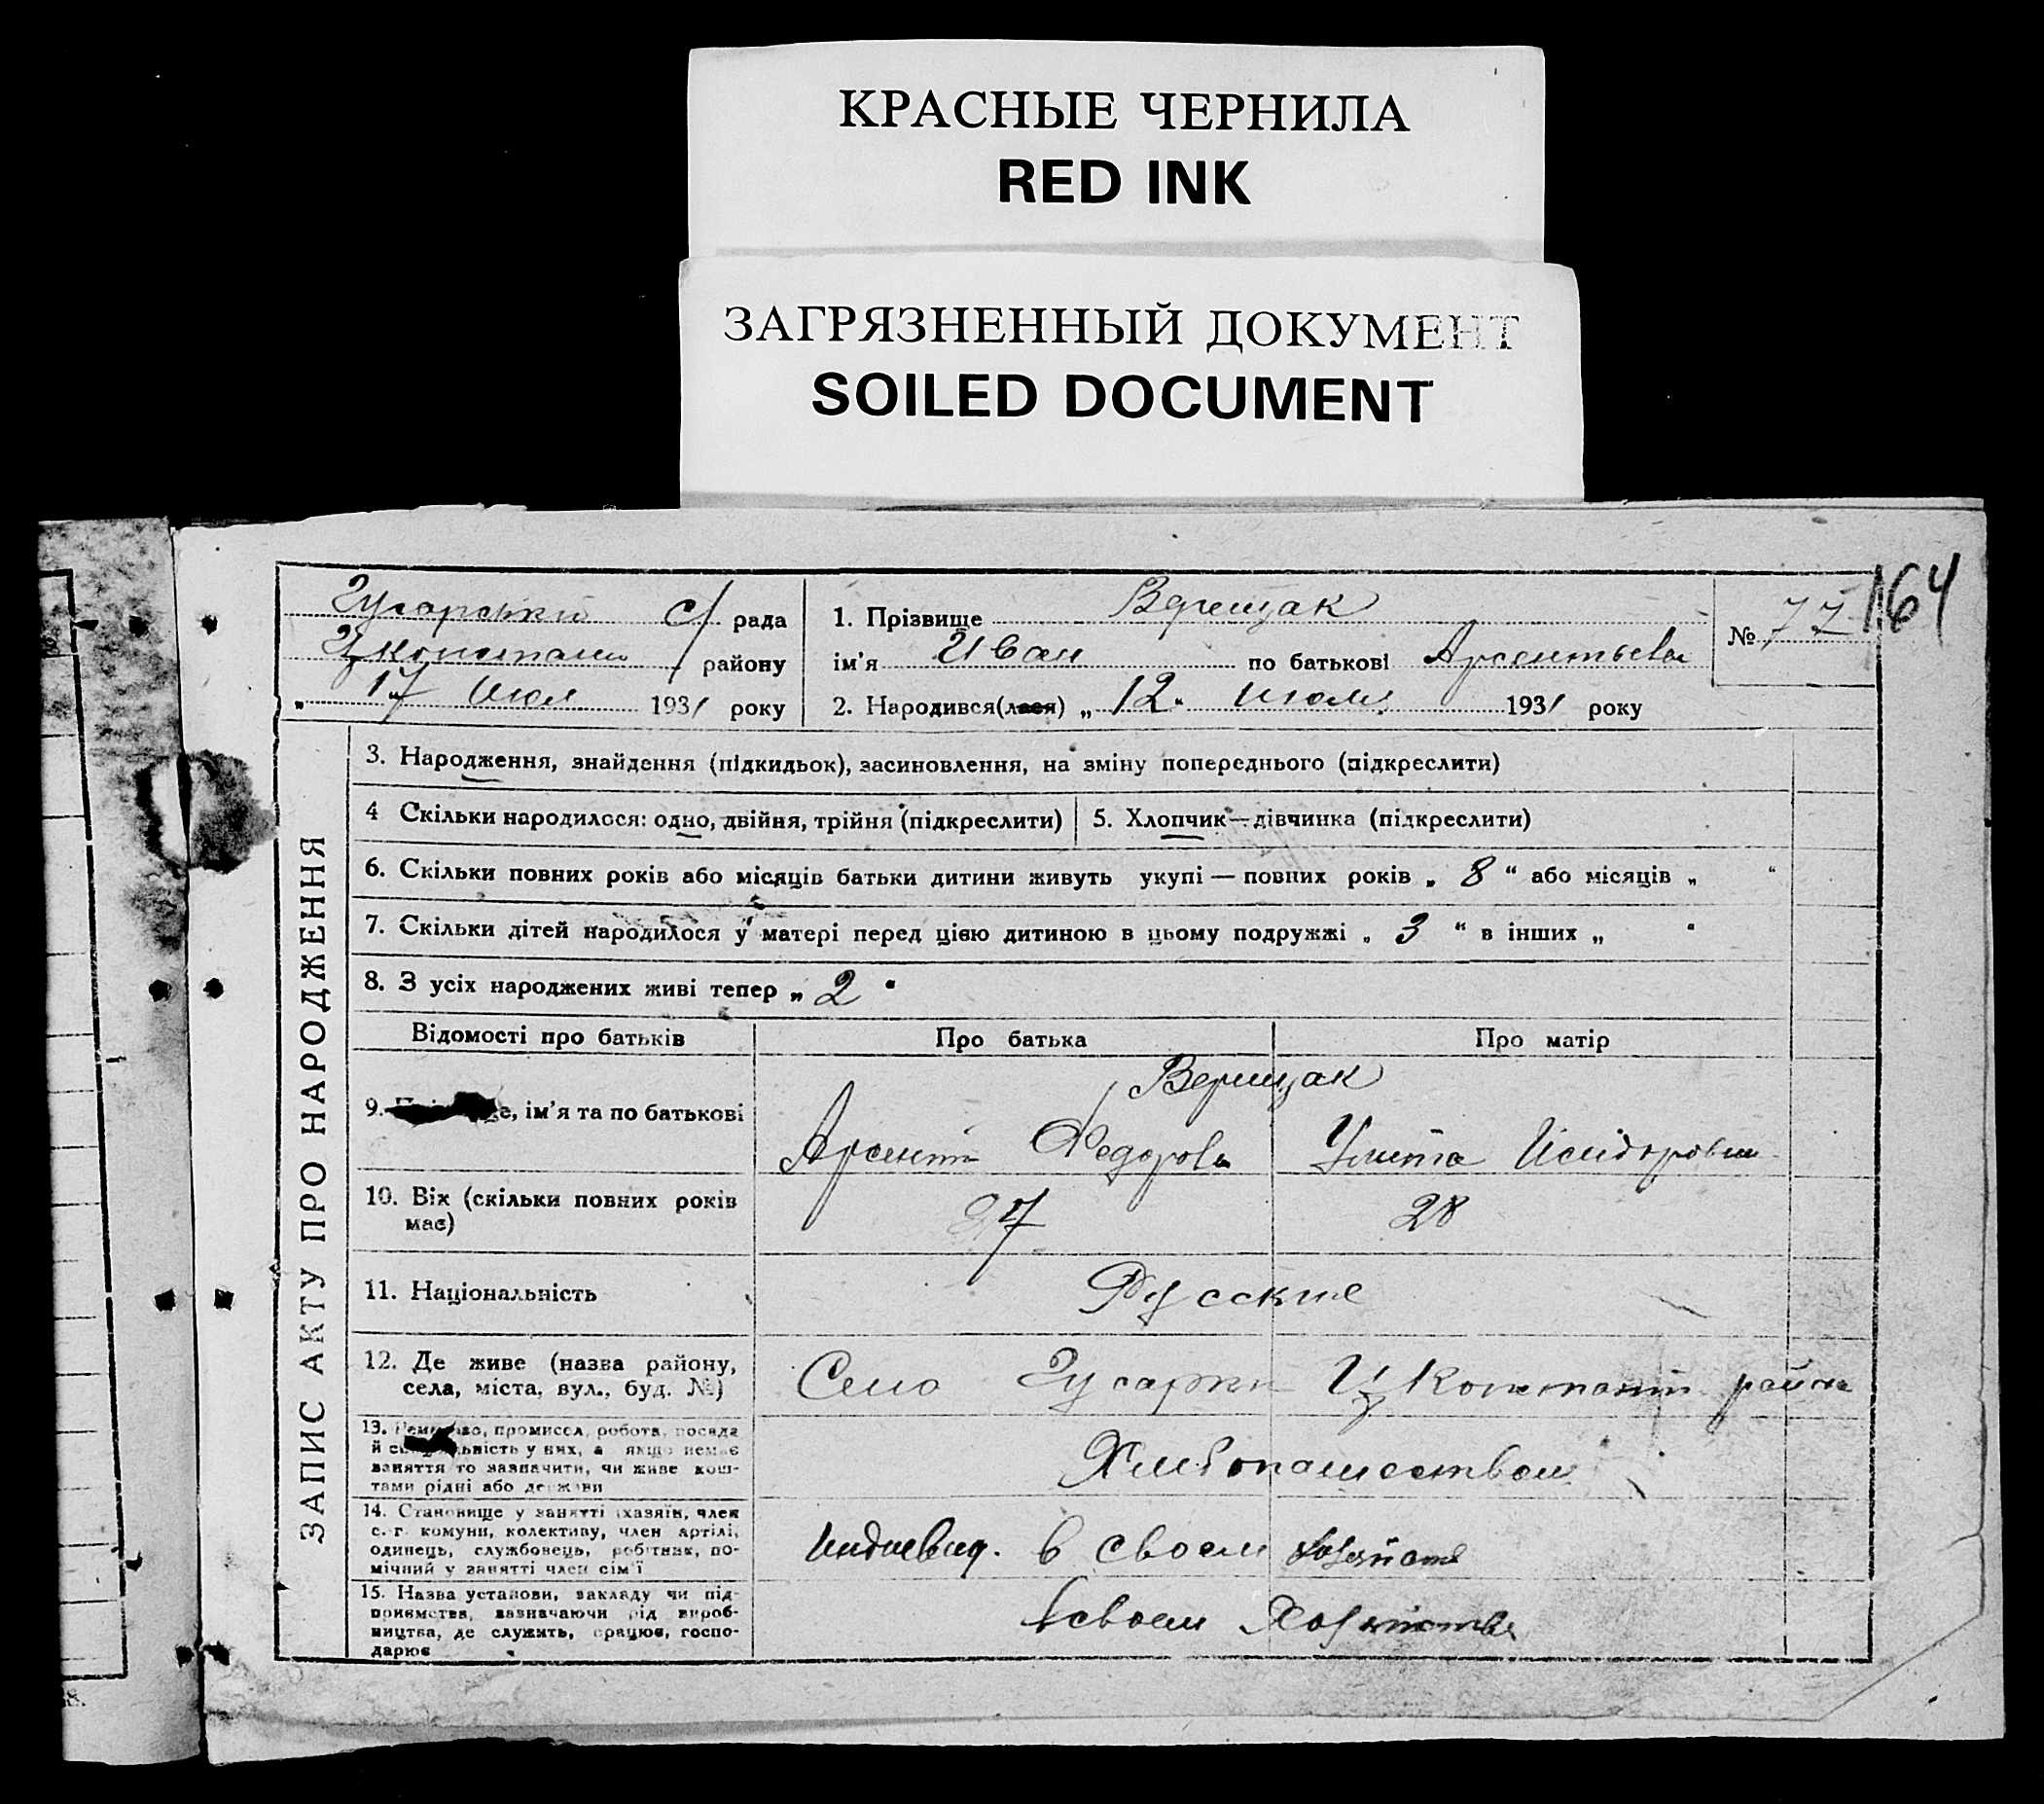 КРАСНЫЕ ЧЕРНИЛА
RED INK
ЗАГРЯЗНЕННЫЙ ДОКУМЕНТ
SOILED DOCUMENT
164
Гусарський с/ рада
Цконстант району
„ 17 Июл 1931 року
1. Прізвище Верещак
ім'я Иван по батькові Арсентьев
2. Народився(лася) „ 12 " Июля 1931 року
№ 77
ЗАПИС АКТУ ПРО НАРОДЖЕННЯ
3. Народження, знайдення (підкидьок), засиновлення, на зміну попереднього (підкреслити)
4 Скільки народилося: одно, двійня, трійня (підкреслити) 5. Хлопчик—дівчинка (підкреслити)
6. Скільки повних років або місяців батьки дитини живуть укупі — повних років „ 8 " або місяців „ "
7. Скільки дітей народилося у матері перед цією дитиною в цьому подружжі „ 3 " в інших „ "
8. З усіх народжених живі тепер „ 2 "
Відомості про батьків Про батька Про матір
Верещак
9. ім'я та по батькові Арсентий Федоров Улита Исидоровна
10. Вік (скільки повних років
має) 27 28
11. Національність Русские
12. Де живе (назва району,
села, міста, вул., буд. №) Село Гусарки Цконстант района
13. промисел, робота, посада
й у них, а якщо немає
заняття то зазначити, чи живе кош-
тами рідні або держави
Хлибопашеством
14. Становище у занятті (хазяїн, член
с.-г. комуни, колективу, член артілі,
одинець, службовець, робітник, по-
мічний у занятті член сім'ї
Индивид. в своем хозяйстве
15. Назва установи, закладу чи під-
приємства, зазначаючи рід вироб-
ництва, де служить, працює, госпо-
дарює
в своем Хозяйстве